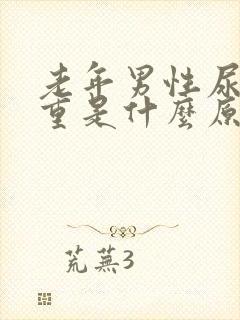 老年男性尿
重是什麼原
荒蕪3